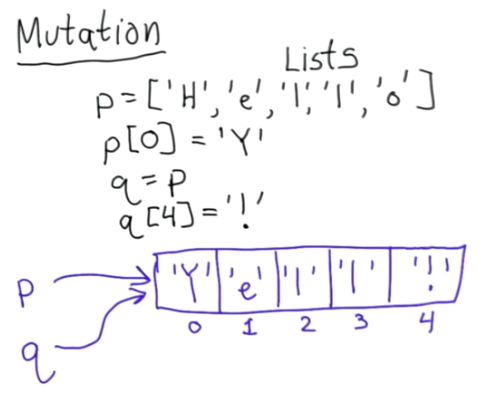 Mutation
Lists
p=['H','e','l','l','o']
p[0]='Y'
q=p
q[4]='!'
p
q
'Y' 'e' 'l' 'l' '!'
0 1 2 3 4